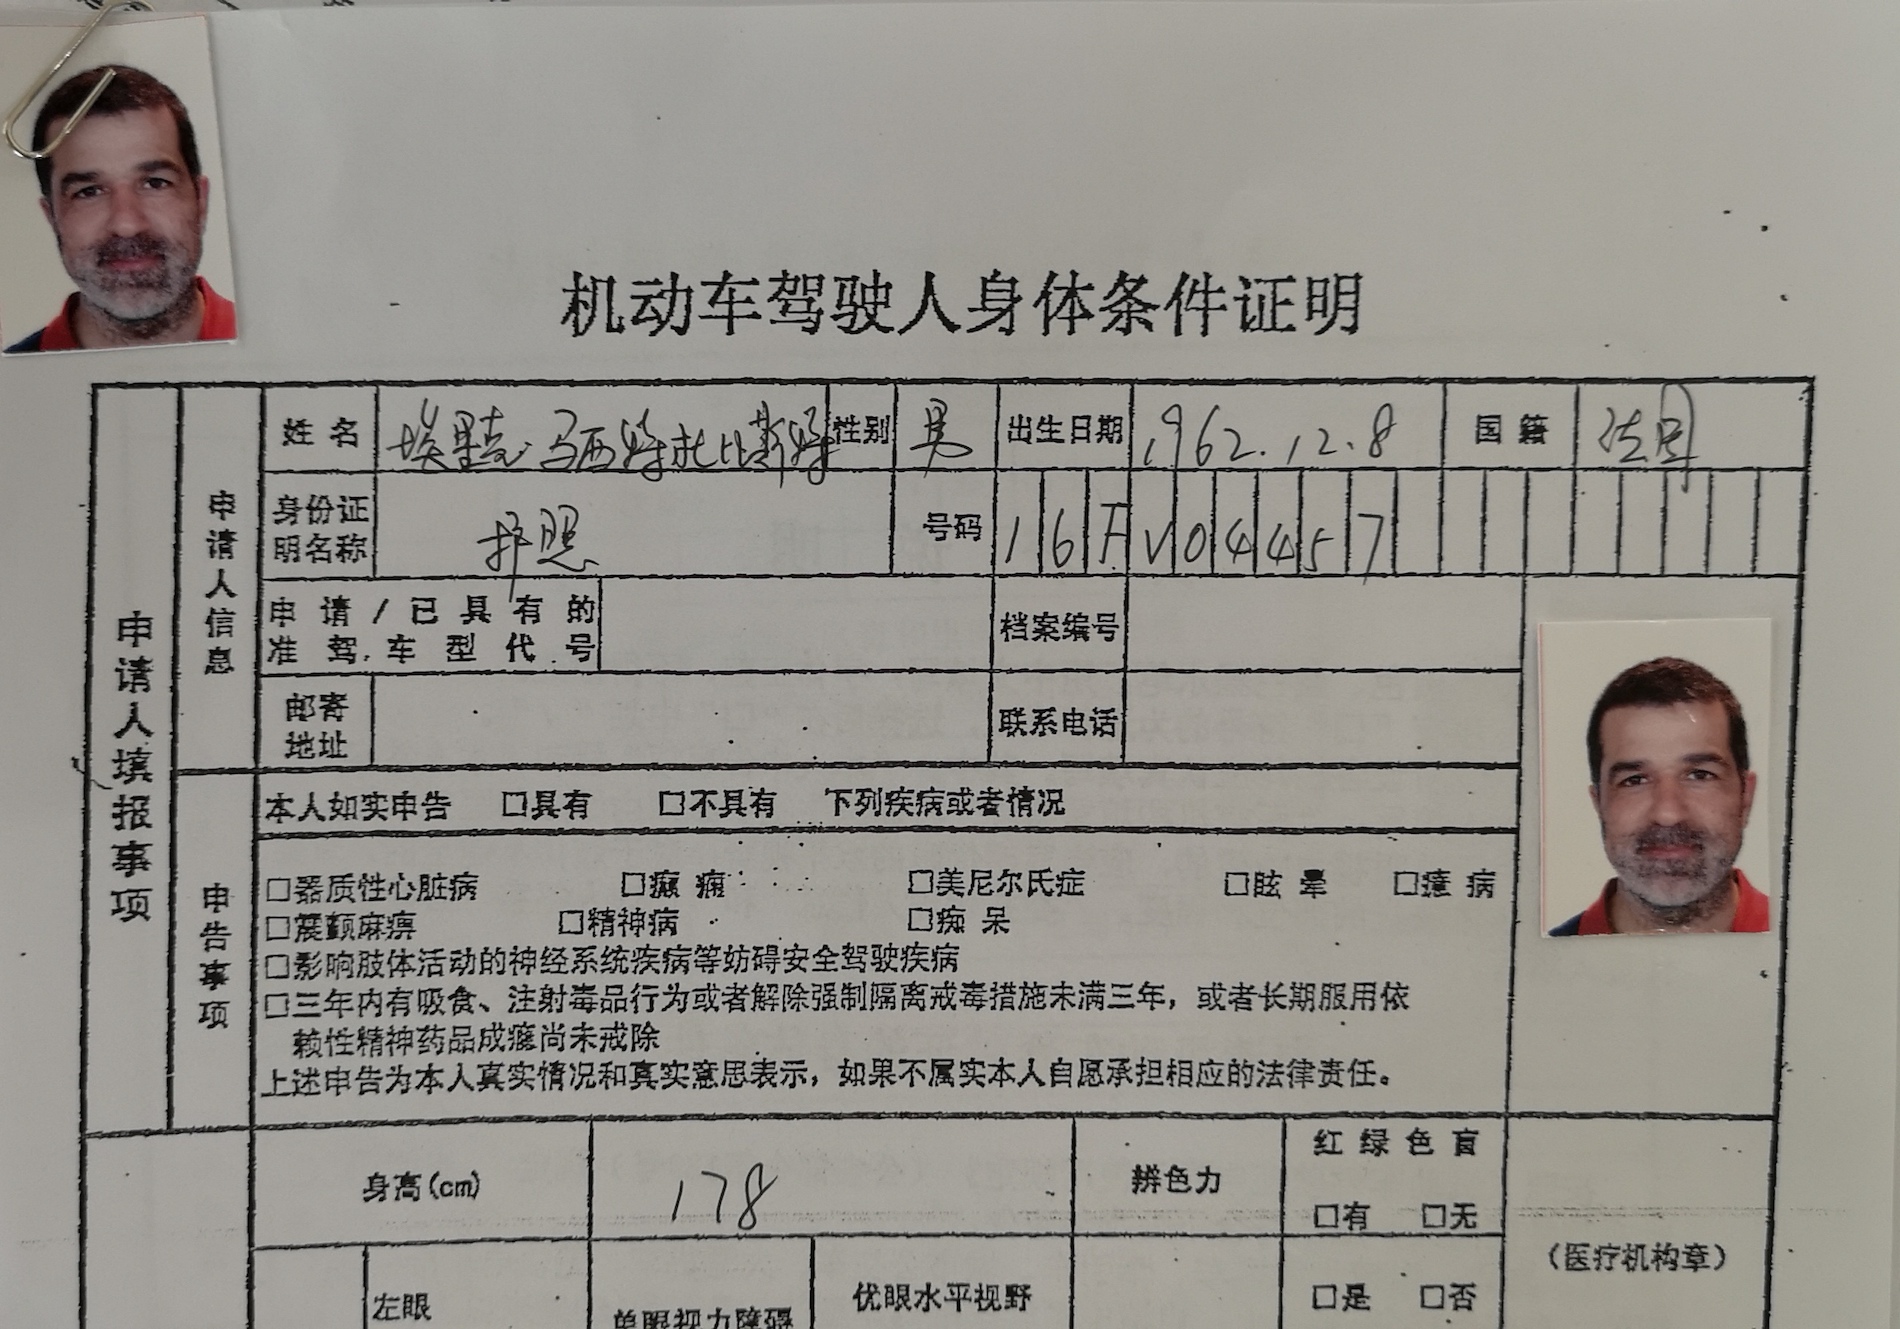 机动车驾驶人身体条件证明
申请人填报事项
申请人信息
姓名 埃里克·马西特杜比斯特 性别 男 出生日期 1962.12.8 国籍 法国
身份证明名称 护照 号码 16FV04457
申请/已具有的准驾车型代号 档案编号
邮寄地址 联系电话
申告事项
本人如实申告 □具有 □不具有 下列疾病或者情况
□器质性心脏病 □癫痫 □美尼尔氏症 □眩晕 □癔病
□震颤麻痹 □精神病 □痴呆
□影响肢体活动的神经系统疾病等妨碍安全驾驶疾病
□三年内有吸食、注射毒品行为或者解除强制隔离戒毒措施未满三年，或者长期服用依
赖性精神药品成瘾尚未戒除
上述申告为本人真实情况和真实意思表示，如果不属实本人自愿承担相应的法律责任。
身高(cm) 178 辨色力 红绿色盲
□有 □无
（医疗机构章）
左眼 单眼视力障碍 优眼水平视野 □是 □否